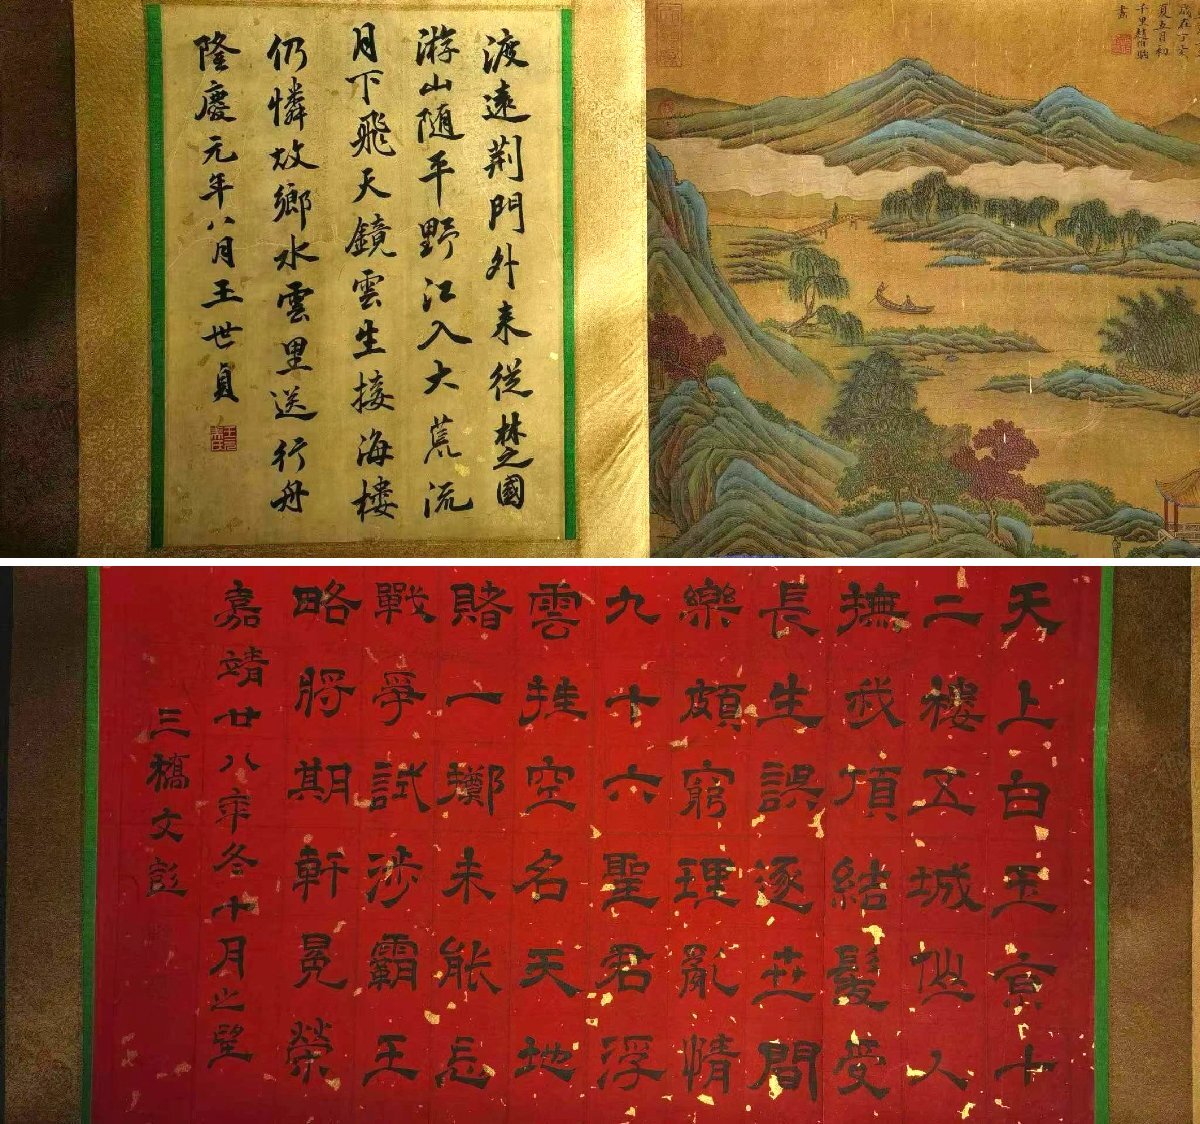 渡遠荆門外来從楚國
游山随平野江入大荒流
月下飛天鏡雲生接海樓
仍憐故鄉水雲里送行舟
隆慶元年八月王世貞
歲在丁亥
夏五月初
千里趙伯駒
畵
天上白玉京十
二樓五城仙人
撫我頂結髮受
長生誤逐世間
樂頗窮理亂情
九十六聖君浮
雲挂空名天地
賭一擲未能忘
戰爭試涉霸王
略將期軒冕榮
嘉靖廿八年冬十月之望
三橋文彭